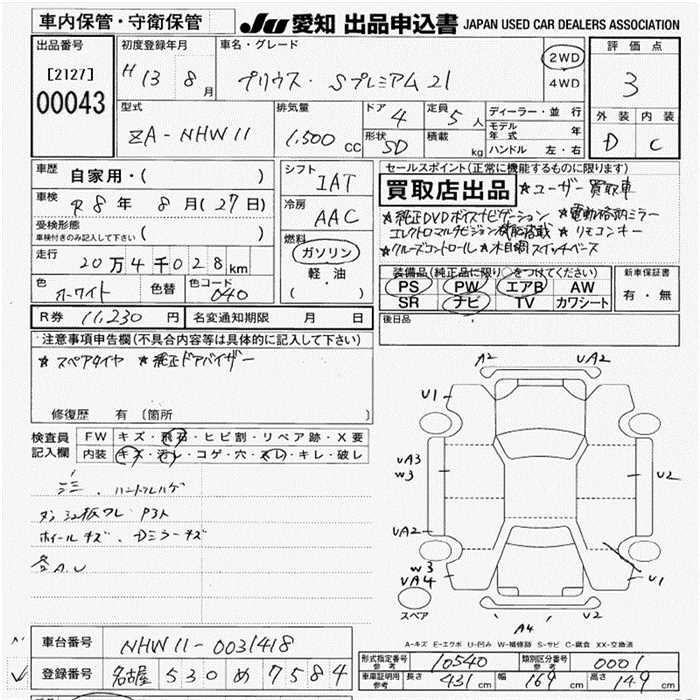 車内保管・守衛保管
JU 愛知 出品申込書 JAPAN USED CAR DEALERS ASSOCIATION
出品番号
[2127]
00043
初度登録年月
H 13 8 月
車名・グレード
プリウス・Sプレミアム21
2WD
4WD
評価点
3
外装 内装
D C
型式
ZA-NHW11
排気量
1,500 CC
ドア 4
定員 5 人
形状 5D
積載 kg
ディーラー・並 行
モデル年式 年
ハンドル 左・右
車歴 自家用・( )
車検 R8 年 8 月(27日)
受検形態
車検付きのみ記入して下さい ( )
走行 20万4千028 km
色 ホワイト 色替 色コード 040
シフト IAT
冷房 AAC
燃料
ガソリン
軽・油
( )
セールスポイント(正常に機能するものに限ります)
買取店出品 ★ユーザー買取車
★純正DVDボイスナビゲーション ★電動格納ミラー
エレクトロマルチビジョン ★リモコンキー
★クルーズコントロール ★木目調
装備品(純正品に限り○をつけてください)
PS PW エアB AW
SR ナビ TV カワシート
新車保証書
有・無
R券 11,230 円 名変通知期限 月 日
後日品
注意事項申告欄(不具合内容等は具体的に記入して下さい)
★スペアタイヤ ★純正ドアバイザー
修復歴 有 〔箇所 〕
検査員記入欄
FW キズ・飛石・ヒビ割・リペア跡・X要
内装 キズ・汚レ・コゲ・穴・スレ・キレ・破レ
ハンドルハゲ
ホイールキズ、Dミラーキズ
A2 UA2
U1
UA3
W3
U2
UA2
W3
UA4
U1
スペア
A4
A-キズ E-エクボ U-凹み W-補修跡 S-サビ C-腐食 XX-交換済
車台番号 NHW11-0031418
登録番号 名古屋 530 め 7584
形式指定番号 参考 10540 類別区分番号 参考 0001
車庫証明用 参考 長さ 431 cm 幅 169 cm 高さ 149 cm